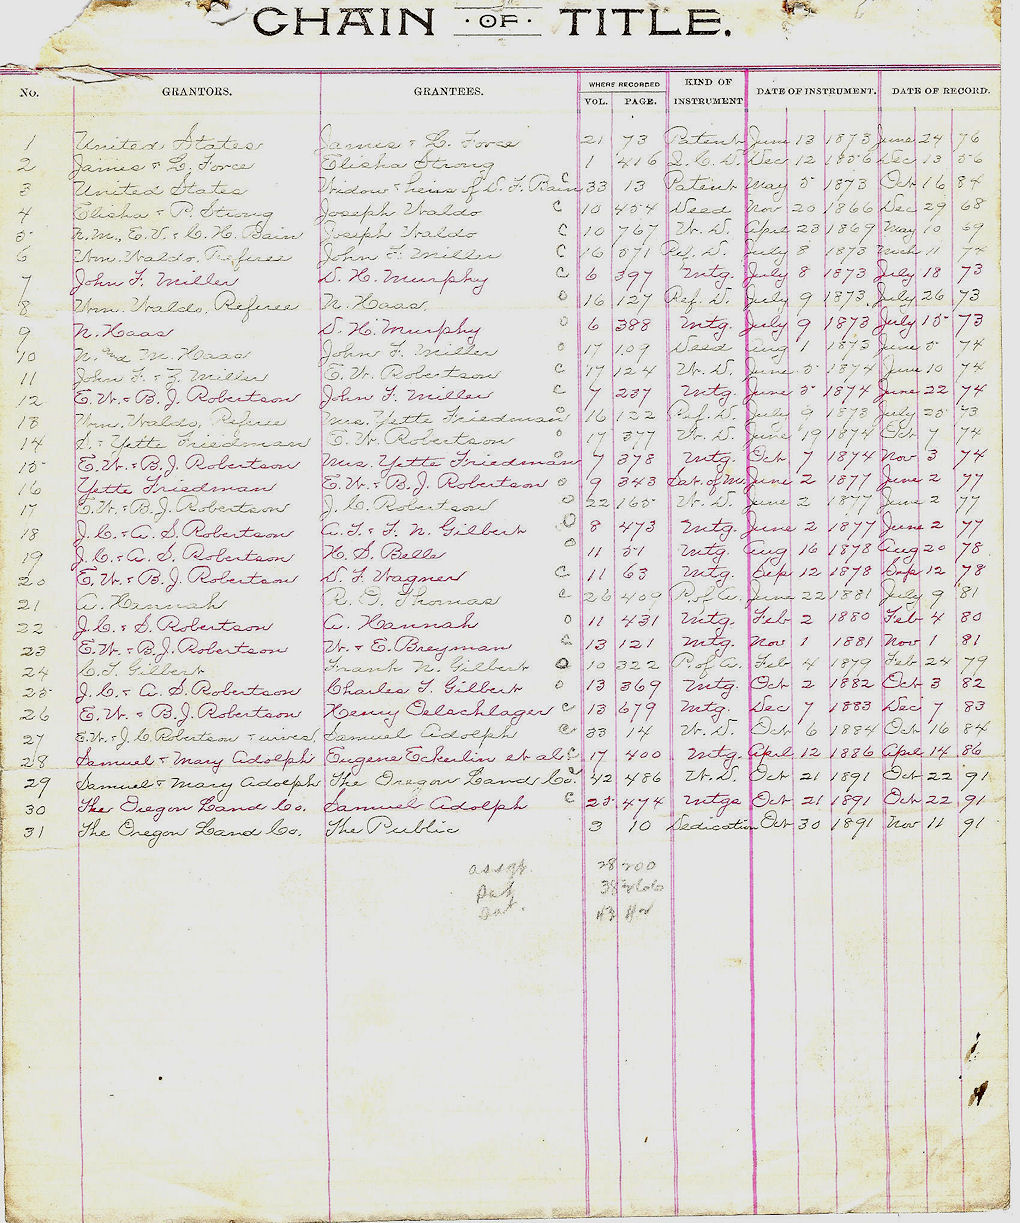 CHAIN OF TITLE.
No. GRANTORS. GRANTEES. WHERE RECORDED VOL. PAGE. KIND OF INSTRUMENT DATE OF INSTRUMENT. DATE OF RECORD.
1 United States James & L. Force 21 73 Patent June 13 1873 June 24 76
2 James & L. Force Elisha Strong 1 416 Q. C. D. Dec 12 1856 Dec 13 56
3 United States Widow & heirs of D. F. Bain C 33 13 Patent May 5 1873 Oct 16 84
4 Elisha & P. Strong Joseph Waldo C 10 454 Deed Nov 20 1866 Dec 29 68
5 R. M., E. V. & C. H. Bain Joseph Waldo C 10 767 W. D. April 23 1869 May 10 69
6 Wm. Waldo, Referee John F. Miller C 16 571 Ref. D. July 8 1873 Mch 11 74
7 John F. Miller D. H. Murphy C 6 397 Mtg. July 8 1873 July 18 73
8 Wm. Waldo, Referee N. Haas O 16 127 Ref. D. July 9 1873 July 26 73
9 N. Haas D. H. Murphy O 6 388 Mtg. July 9 1873 July 15 73
10 N. and M. Haas John F. Miller O 17 109 Deed Aug 1 1873 June 5 74
11 John F. & Z. Miller E. W. Robertson C 17 124 W. D. June 5 1874 June 10 74
12 E. W. & B. J. Robertson John F. Miller C 7 237 Mtg. June 5 1874 June 22 74
13 Wm. Waldo, Referee Mrs. Yette Friedman O 16 122 Ref. D. July 9 1873 July 25 73
14 S. & Yette Friedman E. W. Robertson O 17 377 W. D. June 19 1874 Oct 7 74
15 E. W. & B. J. Robertson Mrs. Yette Friedman 7 378 Mtg. Oct 7 1874 Nov 3 74
16 Yette Friedman E. W. & B. J. Robertson O 9 343 Sat. of M. June 2 1877 June 2 77
17 E. W. & B. J. Robertson J. C. Robertson O 22 165 W. D. June 2 1877 June 2 77
18 J. C. & A. S. Robertson A. T. & F. N. Gilbert O 8 473 Mtg. June 2 1877 June 2 77
19 J. C. & A. S. Robertson H. S. Belle O 11 51 Mtg. Aug 16 1878 Aug 20 78
20 E. W. & B. J. Robertson D. F. Wagner C 11 63 Mtg. Sep 12 1878 Sep 12 78
21 A. Hannah R. O. Thomas C 26 409 P. of A. June 22 1881 July 9 81
22 J. C. & S. Robertson A. Hannah O 11 431 Mtg. Feb 2 1880 Feb 4 80
23 E. W. & B. J. Robertson W. & E. Breyman C 13 121 Mtg. Nov 1 1881 Nov 1 81
24 C. T. Gilbert Frank N. Gilbert O 10 322 P. of A. Feb 4 1879 Feb 24 79
25 J. C. & A. S. Robertson Charles T. Gilbert O 13 369 Mtg. Oct 2 1882 Oct 3 82
26 E. W. & B. J. Robertson Henry Oelschlager C 13 679 Mtg. Dec 7 1883 Dec 7 83
27 E. W. & J. C. Robertson & wives Samuel Adolph C 33 14 W. D. Oct 6 1884 Oct 16 84
28 Samuel & Mary Adolph Eugene Eckerlin et al C 17 400 Mtg. April 12 1886 April 14 86
29 Samuel & Mary Adolph The Oregon Land Co. 42 486 W. D. Oct 21 1891 Oct 22 91
30 The Oregon Land Co. Samuel Adolph C 25 474 Mtge Oct 21 1891 Oct 22 91
31 The Oregon Land Co. The Public 3 10 Dedication Oct 30 1891 Nov 11 91
28 200